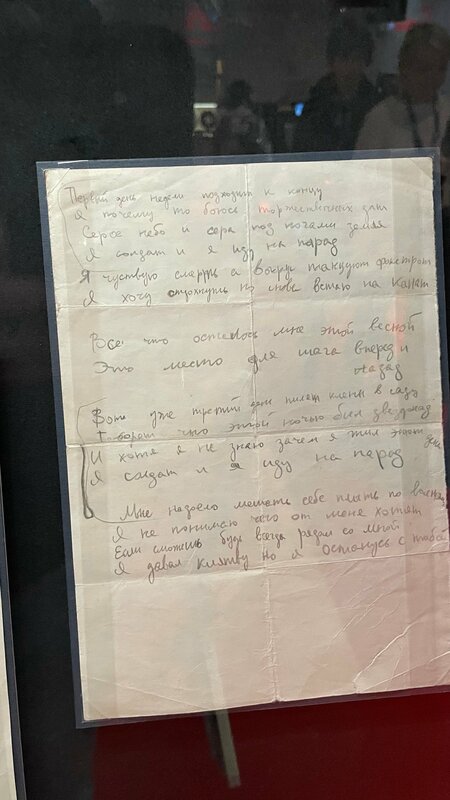 Первый день недели подходит к концу
Я почему то боюсь торжественных дат
Серое небо и сера под ногами земля
Я солдат и я иду на парад
Я чуствую смерть а вокруг танцуют фокстрот
Я хочу отдохнуть но снова встаю на канат
Все что осталось мне этой весной
Это место для шага вперед и
назад
Вот уже третий дни пилят клены в саду
Говорят что этой ночью был звездопад
И хотя я не знаю зачем я жил этот день
Я солдат и иду на парад
Мне надоело мешать себе плыть по волнам
Я не понимаю чего от меня хотят
Если сможешь будь всегда рядом со мной
Я давал клятву но я останусь с тобой